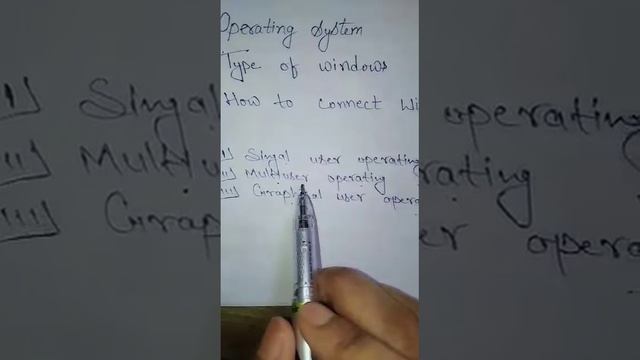 Operating System
Type of windows
How to connect Wi
I) Singal user operating
II) Multiuser operating
III) Graphical user opera